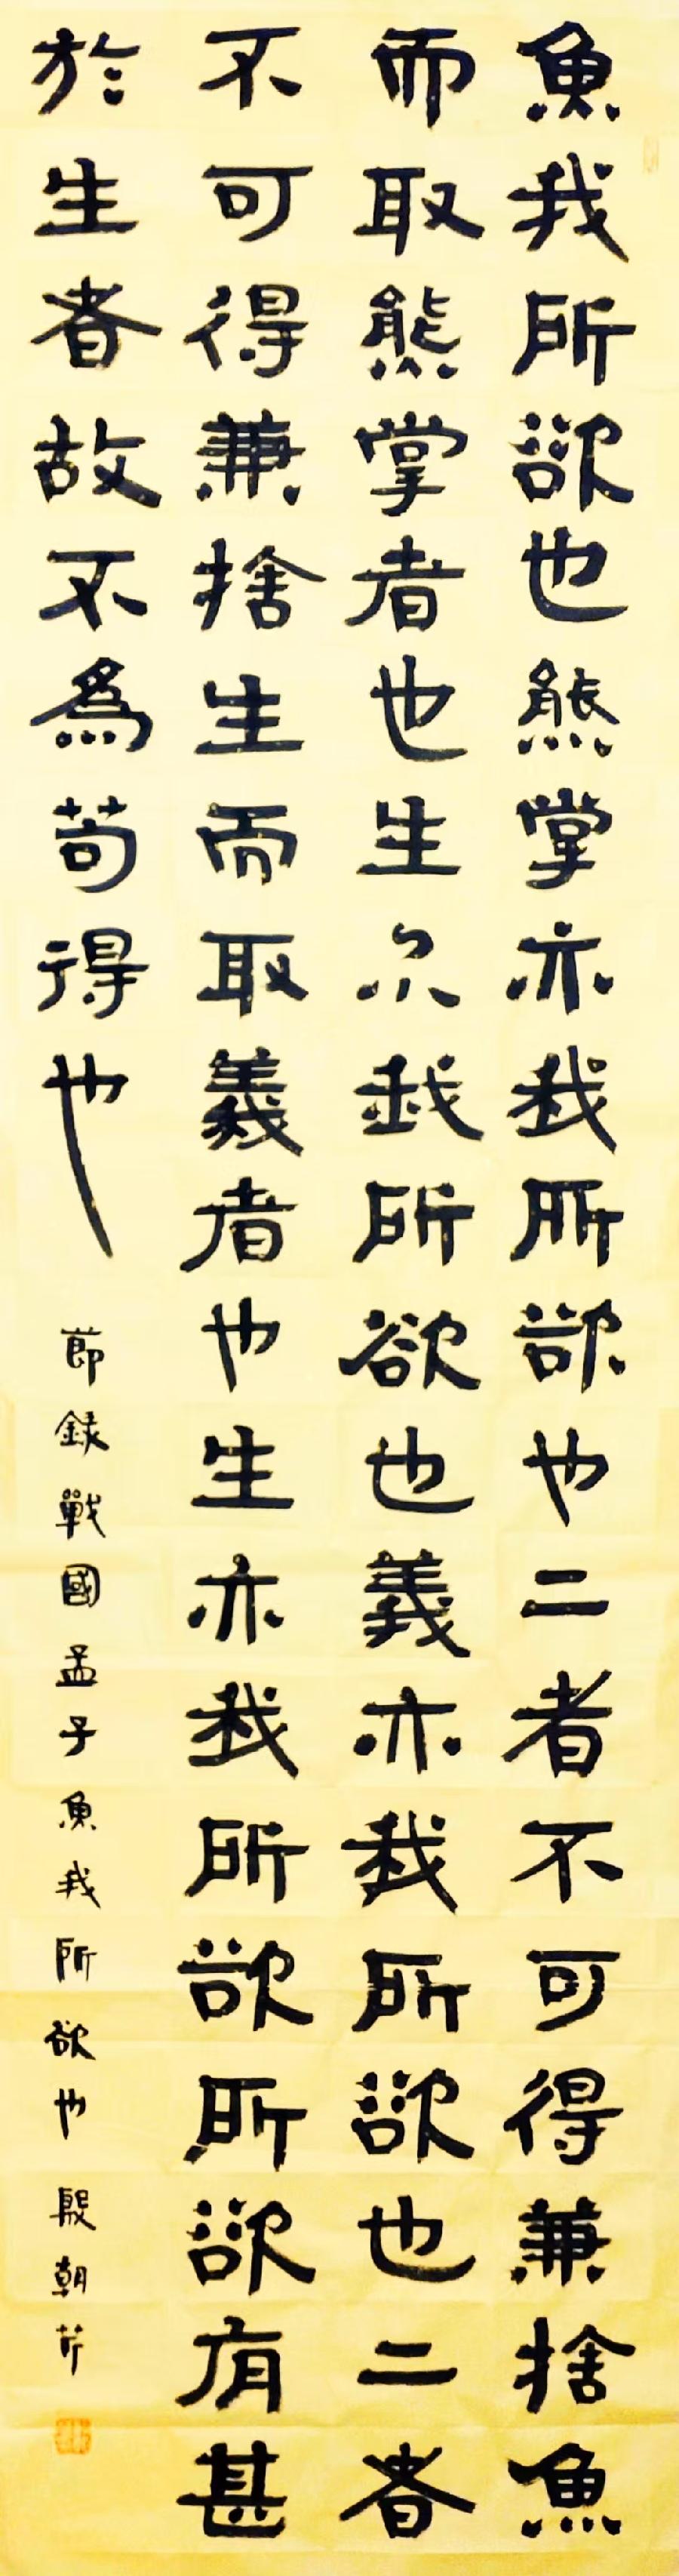 魚我所欲也熊掌亦我所欲也二者不可得兼捨魚
而取熊掌者也生亦我所欲也義亦我所欲也二者
不可得兼捨生而取義者也生亦我所欲所欲有甚
於生者故不為苟得也
節錄戰國孟子魚我所欲也殷朝芹